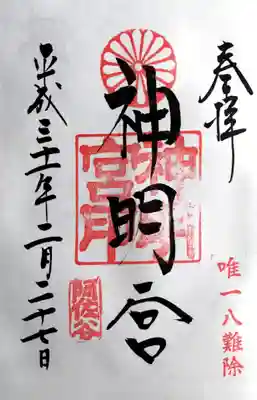 奉拝
唯一八難除
神明宮
神明宮
阿佐谷
平成三十一年二月二十七日